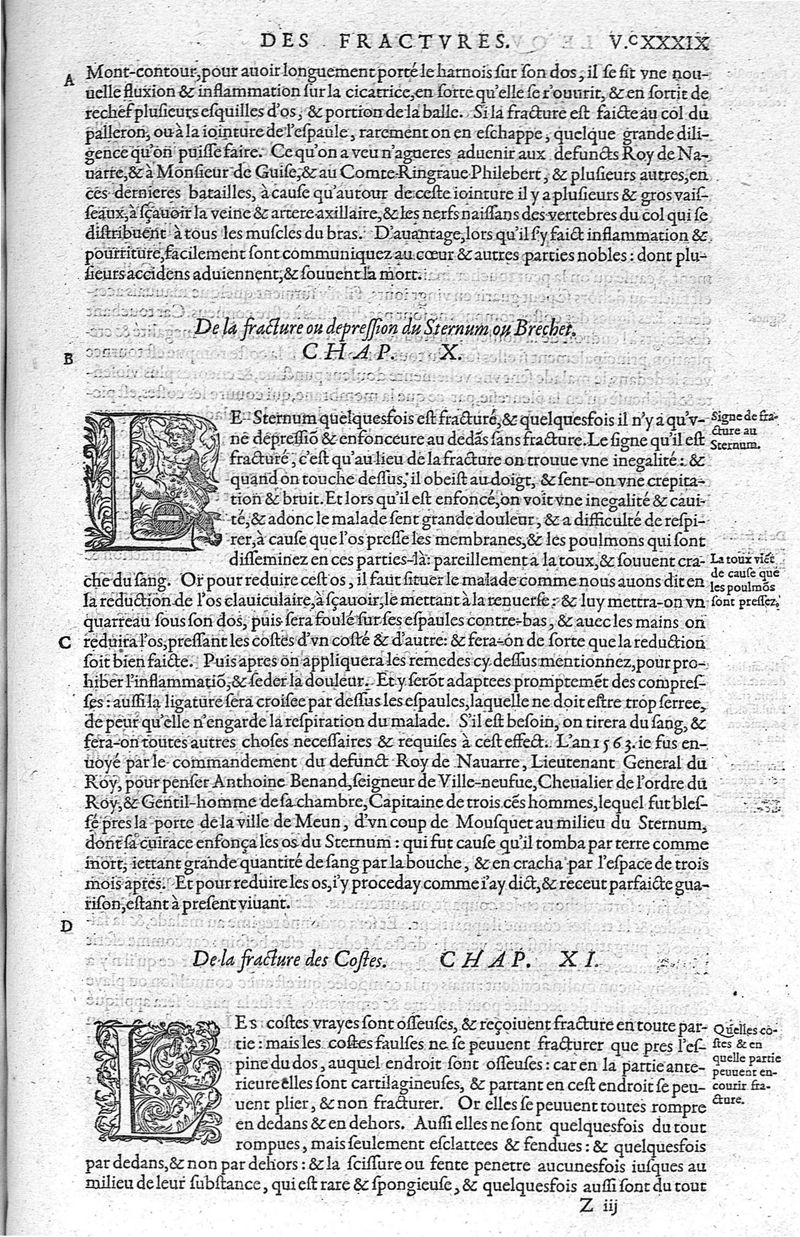 DES FRACTVRES. V.ᶜXXXIX
A
Mont-contour, pour auoir longuement porté le harnois sur son dos, il se fit vne nou-
uelle fluxion & inflammation sur la cicatrice, en sorte qu'elle se r'ouurit, & en sortit de
rechef plusieurs esquilles d'os, & portion de la balle. Si la fracture est faicte au col du
palleron, ou à la iointure de l'espaule, rarement on en eschappe, quelque grande dili-
gence qu'on puisse faire. Ce qu'on a veu n'agueres aduenir aux defuncts Roy de Na-
uarre, & à Monsieur de Guise, & au Comte Ringraue Philebert, & plusieurs autres, en
ces dernieres batailles, à cause qu'autour de ceste iointure il y a plusieurs & gros vais-
seaux, à sçauoir la veine & artere axillaire, & les nerfs naissans des vertebres du col qui se
distribuent à tous les muscles du bras. D'auantage, lors qu'il s'y faict inflammation &
pourriture, facilement sont communiquez au cœur & autres parties nobles: dont plu-
sieurs accidens aduiennent, & souuent la mort.
De la fracture ou depression du Sternum ou Brechet.
CHAP. X.
B
LE Sternum quelquesfois est fracturé, & quelquesfois il n'y a qu'v-
ne depressiõ & enfonceure au dedãs sans fracture. Le signe qu'il est
fracturé, c'est qu'au lieu de la fracture on trouue vne inegalité: &
quand on touche dessus, il obeist au doigt, & sent-on vne crepita-
tion & bruit. Et lors qu'il est enfoncé, on voit vne inegalité & caui-
té, & adonc le malade sent grande douleur, & a difficulté de respi-
rer, à cause que l'os presse les membranes, & les poulmons qui sont
disseminez en ces parties-là: pareillement a la toux, & souuent cra-
che du sang. Or pour reduire cest os, il faut situer le malade comme nous auons dit en
la reduction de l'os clauiculaire, à sçauoir, le mettant à la renuerse: & luy mettra-on vn
quarreau sous son dos, puis sera foulé sur ses espaules contre-bas, & auec les mains on
C
reduira l'os, pressant les costes d'vn costé & d'autre: & fera-on de sorte que la reduction
soit bien faicte. Puis apres on appliquera les remedes cy dessus mentionnez, pour pro-
hiber l'inflammatiõ, & seder la douleur. Et y serõt adaptees promptemẽt des compres-
ses: aussi la ligature sera croisee par dessus les espaules, laquelle ne doit estre trop serree,
de peur qu'elle n'engarde la respiration du malade. S'il est besoin, on tirera du sang, &
fera-on toutes autres choses necessaires & requises à cest effect. L'an 1563. ie fus en-
uoyé par le commandement du defunct Roy de Nauarre, Lieutenant General du
Roy, pour penser Anthoine Benand, seigneur de Ville-neufue, Cheualier de l'ordre du
Roy, & Gentil-homme de sa chambre, Capitaine de trois cẽs hommes, lequel fut bles-
sé pres la porte de la ville de Meun, d'vn coup de Mousquet au milieu du Sternum,
dont sa cuirace enfonça les os du Sternum: qui fut cause qu'il tomba par terre comme
mort, iettant grande quantité de sang par la bouche, & en cracha par l'espace de trois
mois apres. Et pour reduire les os, i'y proceday comme i'ay dict, & receut parfaicte gua-
rison, estant à present viuant.
D
De la fracture des Costes. CHAP. XI.
LEs costes vrayes sont osseuses, & reçoiuent fracture en toute par-
tie: mais les costes faulses ne se peuuent fracturer que pres l'es-
pine du dos, auquel endroit sont osseuses: car en la partie ante-
rieure elles sont cartilagineuses, & partant en cest endroit se peu-
uent plier, & non fracturer. Or elles se peuuent toutes rompre
en dedans & en dehors. Aussi elles ne sont quelquesfois du tout
rompues, mais seulement esclattees & fendues: & quelquesfois
par dedans, & non par dehors: & la scissure ou fente penetre aucunesfois iusques au
milieu de leur substance, qui est rare & spongieuse, & quelquesfois aussi sont du tout
Z iij
Signe de fra-
cture au
Sternum.
La toux viẽt
de cause que
les poulmõs
sont pressez.
Quelles co-
stes & en
quelle partie
peuuent en-
courir fra-
cture.